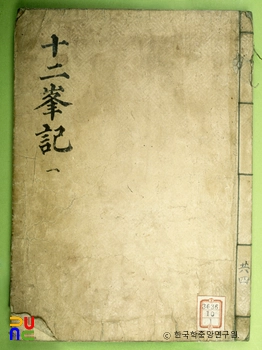 十二峯記
一
共四
© 한국학중앙연구원